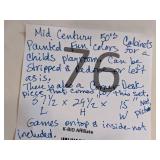 Mid Century 50's Cabinets for a
Painted fun colors
Childs playroom. Can be
Stripped & or left
as is.
There is a Desk
piece that comes for this set.
57 1/2 x 29 1/2 x 15
H
W
Games on top & inside not
included.
K-BID Affiliate
76